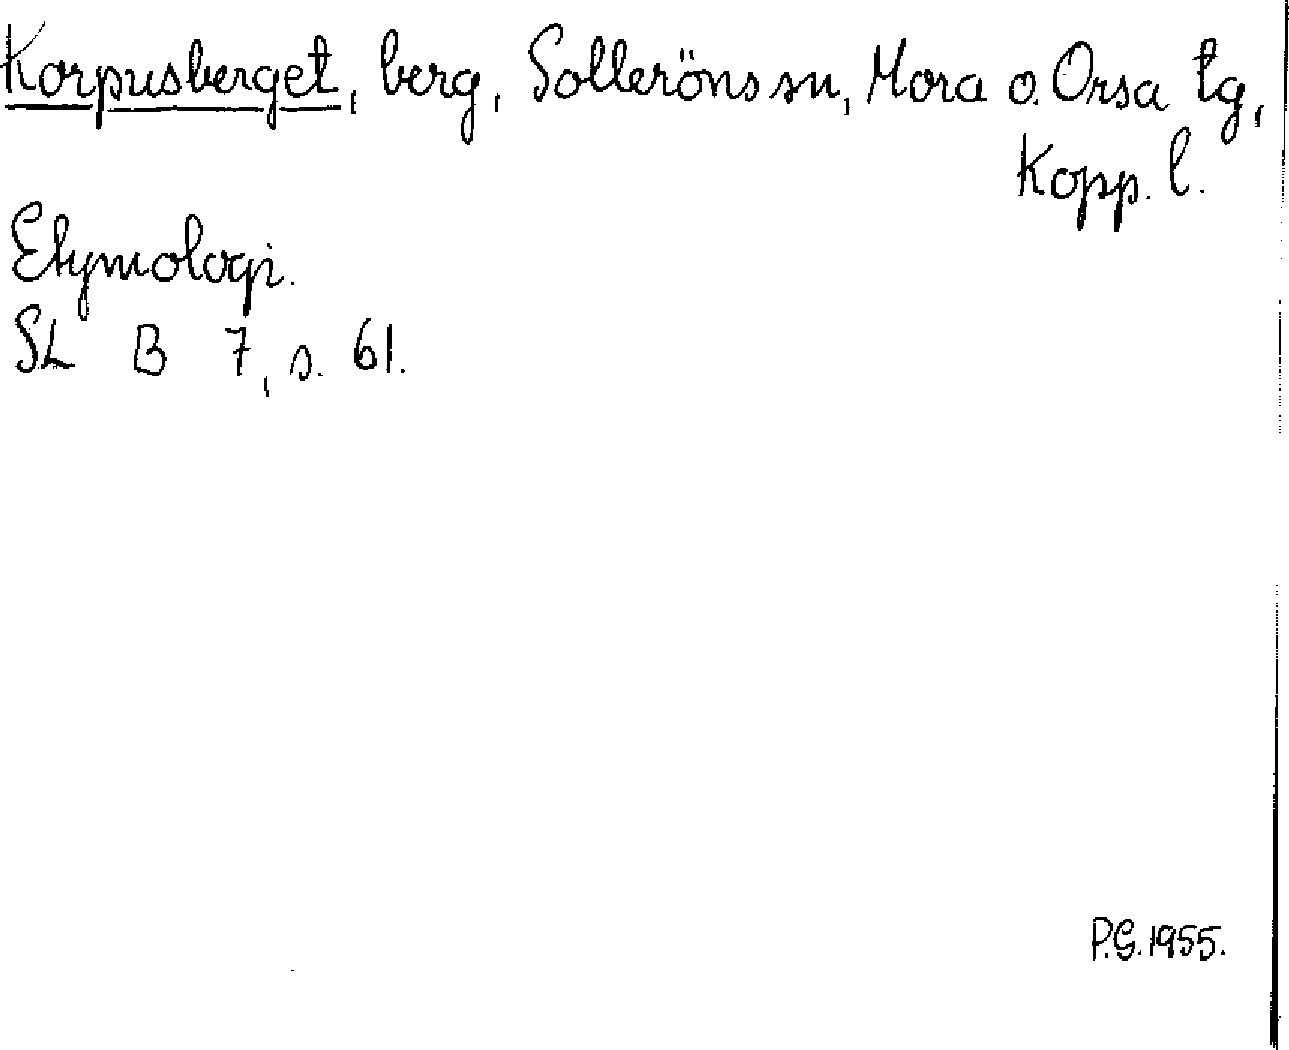 Korpusberget, berg, Solleröns sn, Mora o. Orsa tg,
Kopp. l.
Etymologi.
SL B 7, s. 61.
P.G. 1955.